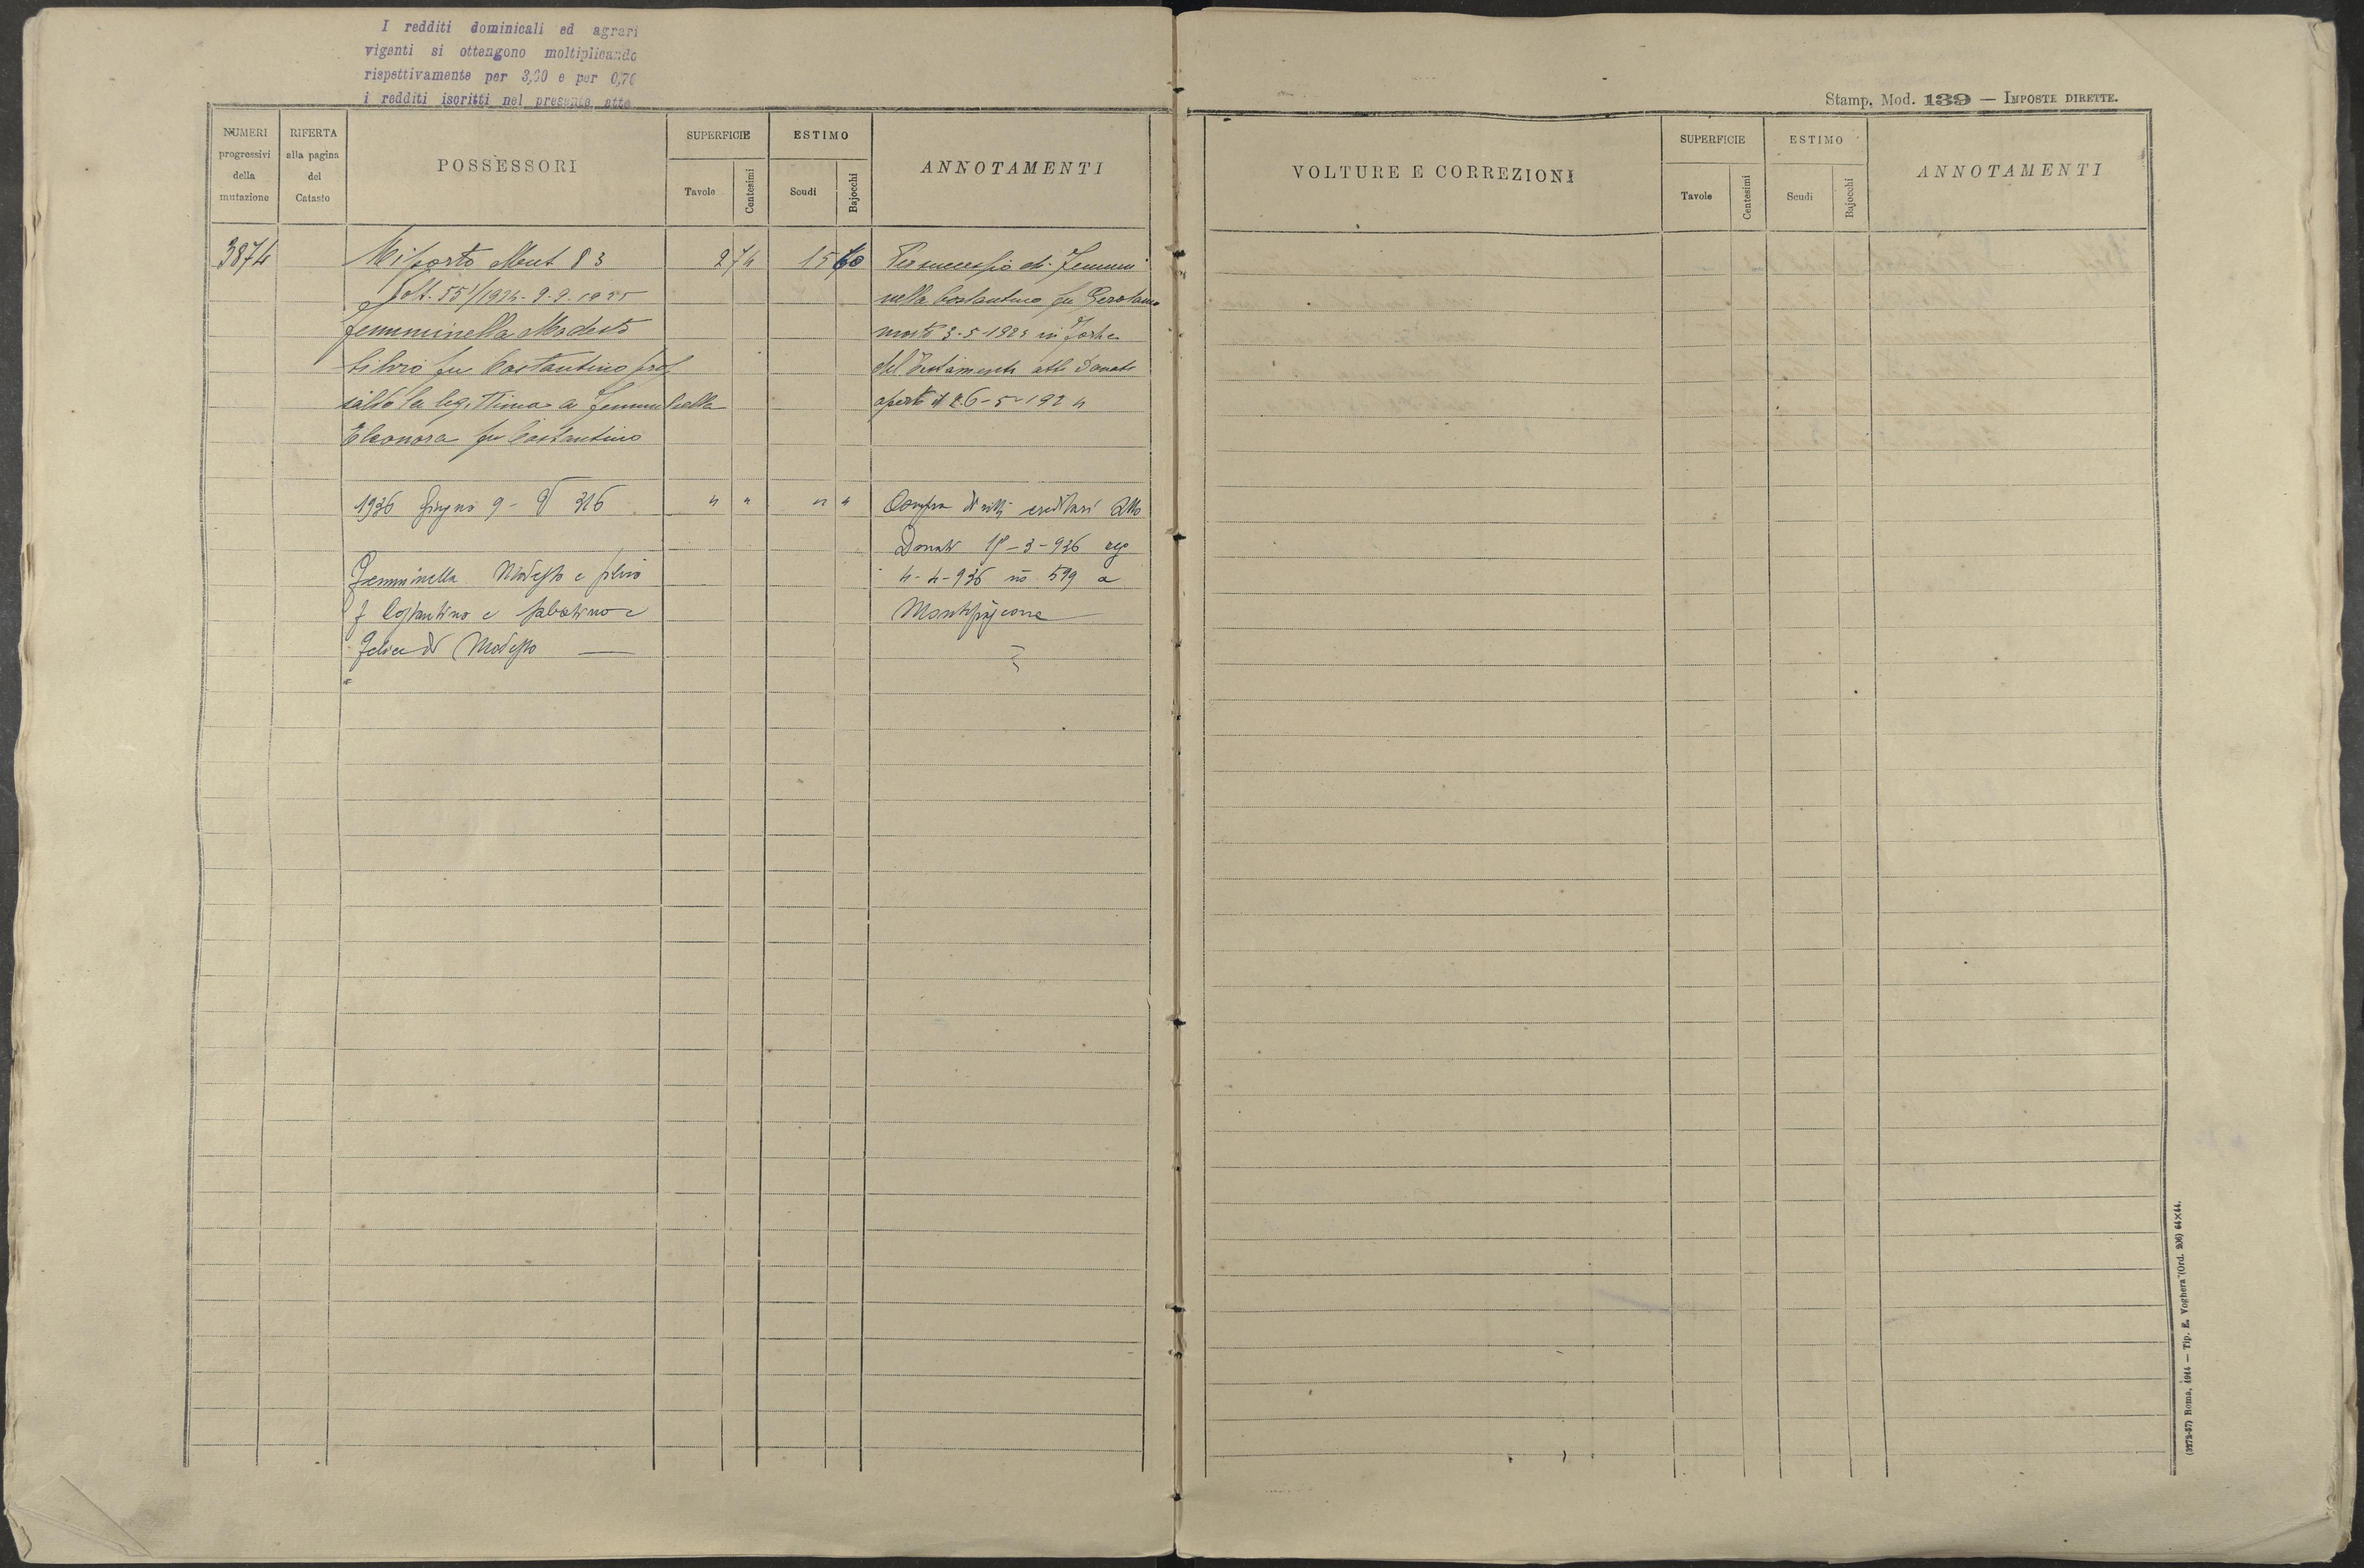 I redditi dominicali ed agrari
vigenti si ottengono moltiplicando
rispettivamente per 3,60 e per 0,70
i redditi iscritti nel presente atto
Stamp. Mod. 139 — IMPOSTE DIRETTE.
NUMERI progressivi della mutazione
RIFERTA alla pagina del Catasto
POSSESSORI
SUPERFICIE
Tavole
Centesimi
ESTIMO
Scudi
Bajocchi
ANNOTAMENTI
VOLTURE E CORREZIONI
SUPERFICIE
Tavole
Centesimi
ESTIMO
Scudi
Bajocchi
ANNOTAMENTI
3874 Riporto Mut 83 2 74 15 60 Per successio di Femmi
Volt. 551/1924 - 9.9.1925 nella Costantino fu Gerolamo
Femminella Modesto morto 3-5-1923 in forza
Silvio fu Costantino prop del Testamento atto Donati
salvo la legittima a Femminella aperto il 26-5-1924
Eleonora fu Costantino
1936 Giugno 9 - V 316 " " " " Compra diritti ereditari Atto
Donati 18-3-936 reg
Femminella Modesto e Silvio 4-4-936 n° 599 a
f Costantino e Sabatino e Montefiascone
Felice di Modesto
(3272-57) Roma, 1914 — Tip. E. Voghera (Ord. 206) 64×44.